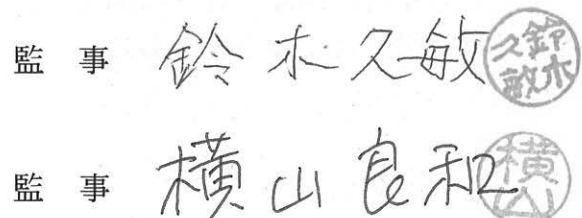 監 事 鈴木久敏 鈴木久敏
監 事 横山良和 横山